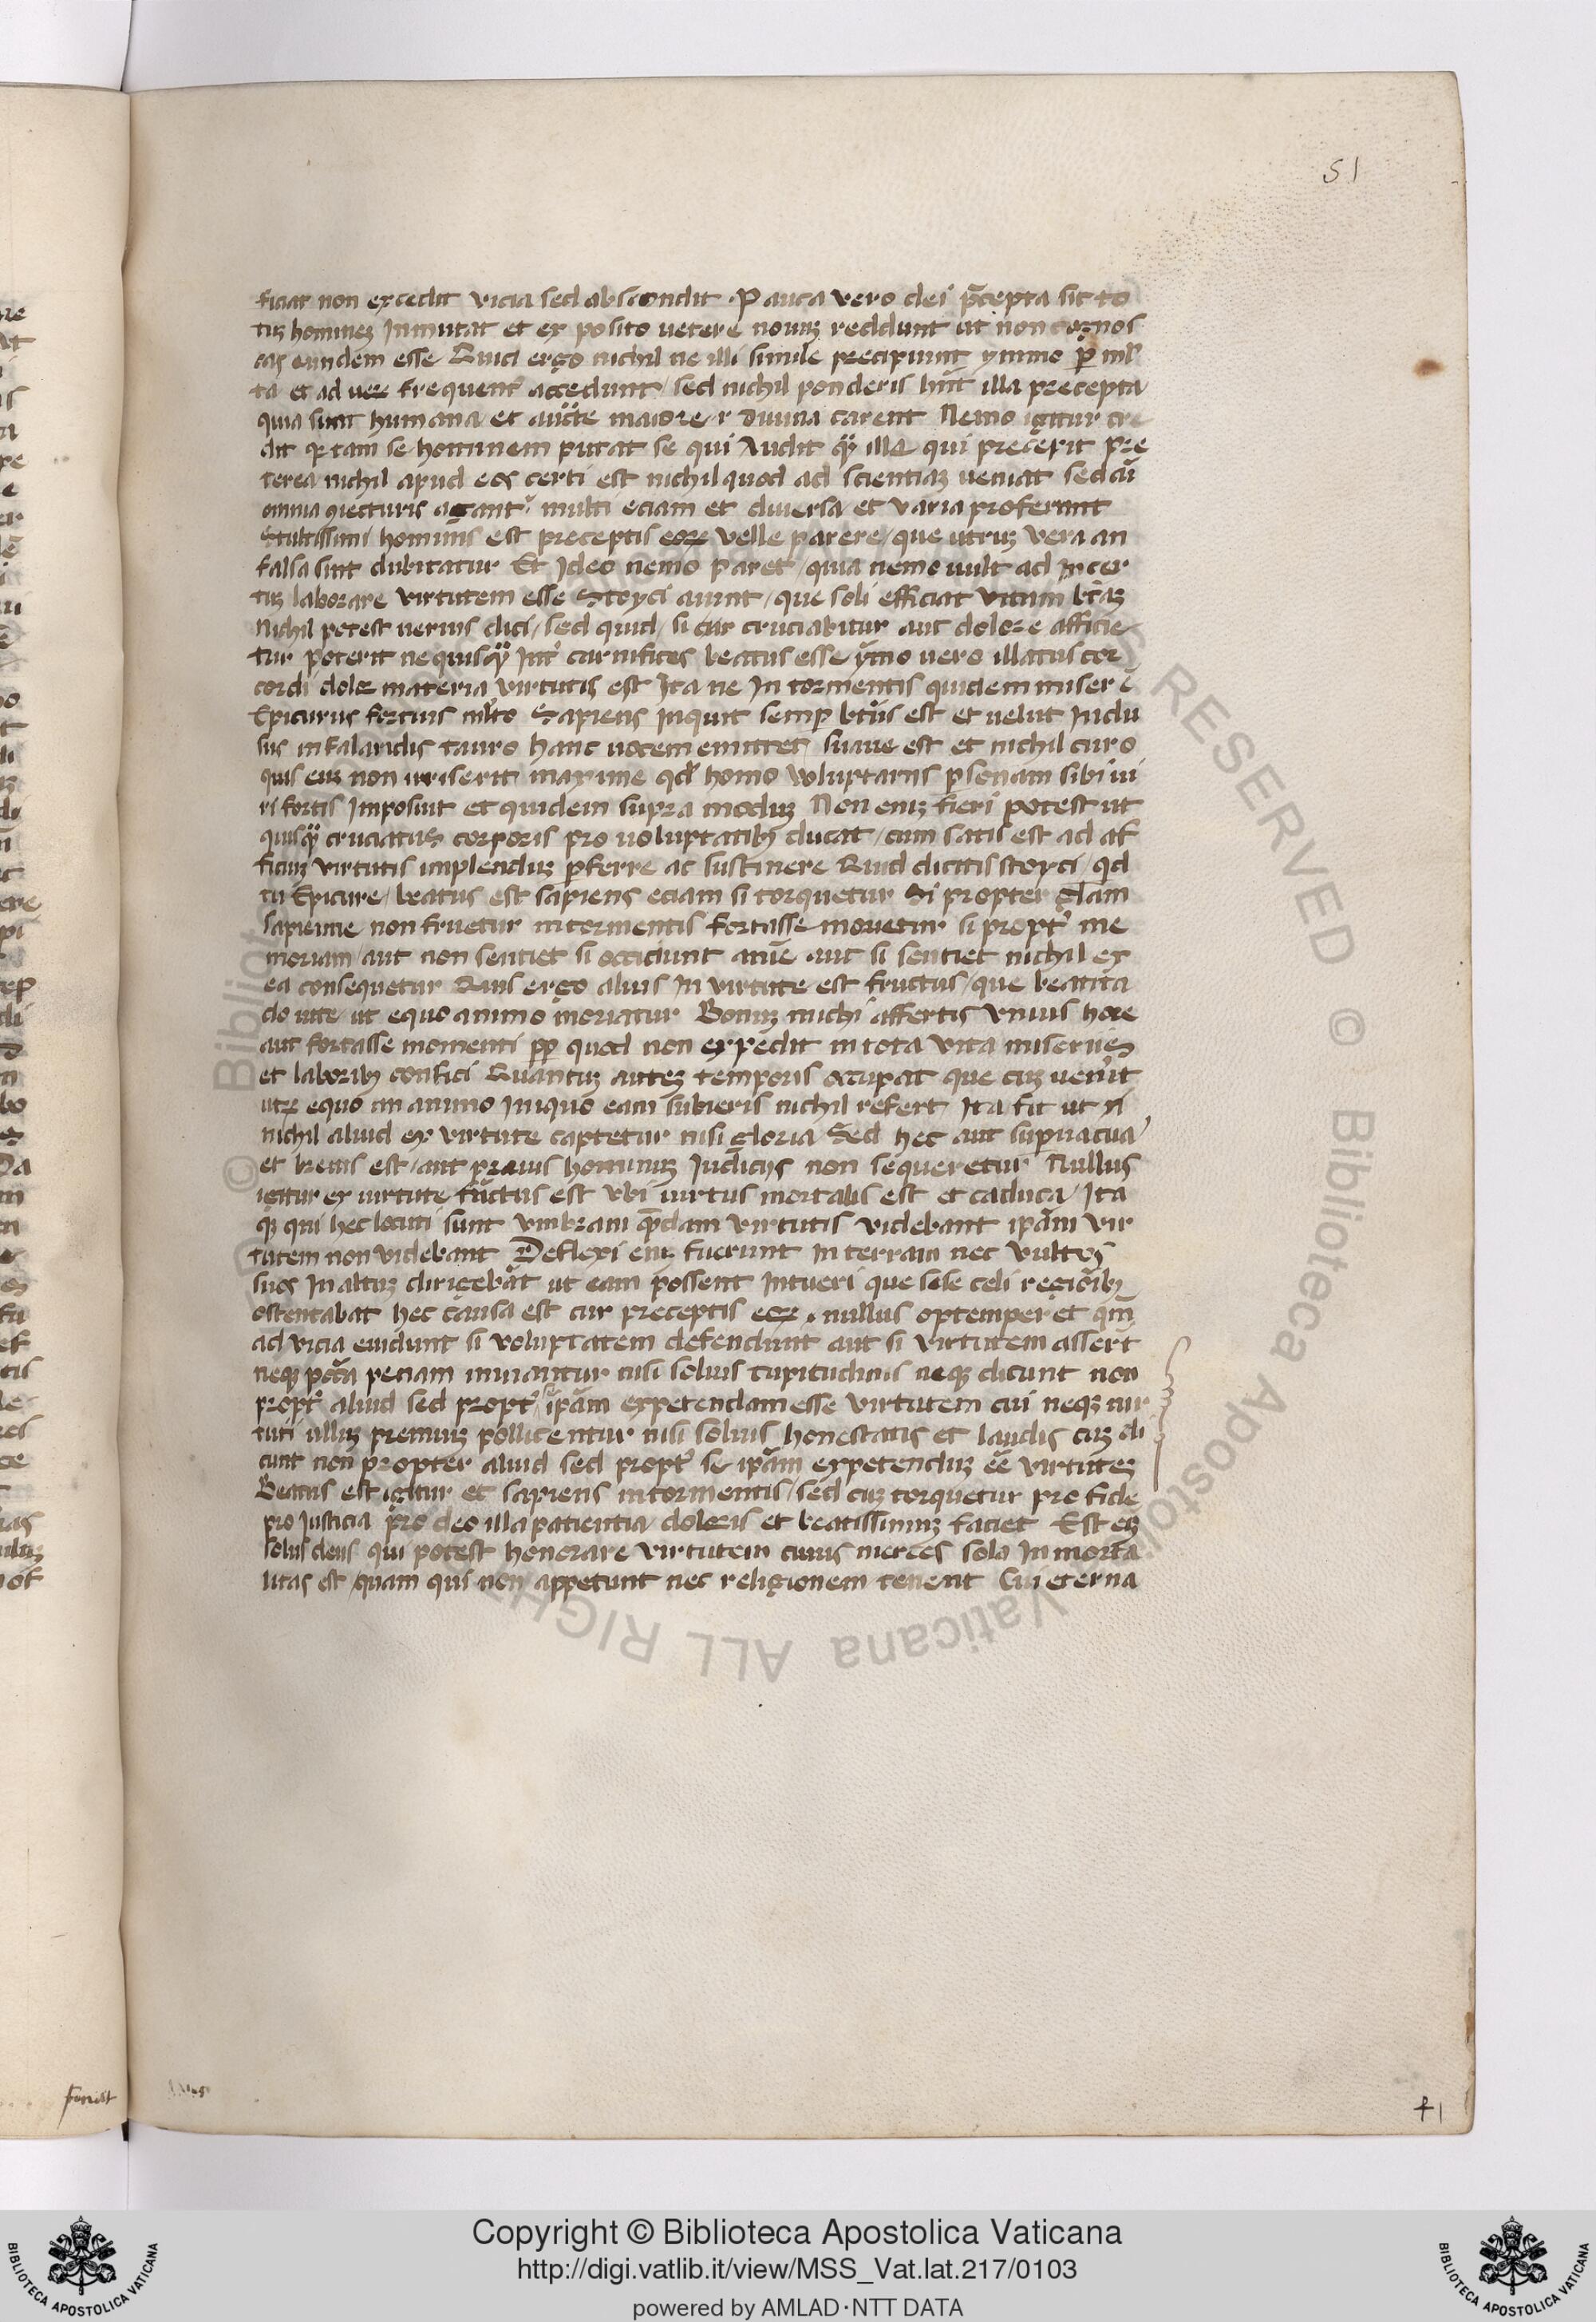 51
ficiat non excedit vicia sed abscondit · Pauca vero dei p̄cepta sic to
tuꝫ homineꝫ Inmutat et ex posito uetere nouuꝫ reddunt ut non cognos
cas eundem esse Quid ergo nichil ne illi simile precipiunt ymmo ꝑ ml̄
ta et ad veꝝ frequent̾ accedunt / sed nichil ponderis hn̄t illa precepta
quia sunt humana / et auc̈te maiore / r diuina carent Nemo igitur cre
dit qꝛ tam se hominem putat se qui Audit qͣ̈ ille qui precepit Pre
terea nichil apud eos certi est nichil quod ad scientiaꝫ ueniat sed cū
omnia ꝯiecturis agant᷑ multi eciam et diuersa et varia proferunt
Stultissimi hominis est preceptis eoꝝ velle parere / que utruꝫ vera an
falsa sint dubitatur Et Ideo nemo paret / quia nemo uult ad Incer
tuꝫ laborare virtutem esse Stoyci aiunt / que soli efficiat vitam btāꝫ
Nichil potest uerius dici / sed quid / si cur cruciabitur aut dolore afficie
tur poterit ne quisqͣ̈ Int̾ carnifices beatus esse ẏmo uero illatus cor
cordi dolor materia virtutis est Ita ne In tormentis quidem miser ē
Epicurus fortius ml̄to Sapiens Inquit semꝑ bt̄us est et uelut Inclu
sus in falaridis tauro hanc uocem emittet suaue est et nichil curo
quis eūꝫ non irriserit maxime qd̄ homo voluptarius ꝑsonam sibi ui
ri fortis Imposuit et quidem supra moduꝫ Non eniꝫ fieri potest ut
quisqͣ̈ cruciatus corporis pro uoluptatibꝫ ducat / cum satis est ad of
ficiuꝫ virtutis implenduꝫ ꝑferre ac sustinere Quid dicitis stoyci / qd
tu Epicure / beatus est sapiens eciam si torquetur Si propter gl̄am
sapiencie non fruetur in tormentis fortasse morietur si propt̾ me
moriam / aut non sentiet si occidunt anīe aut si sentiet nichil ex
ea consequetur Quis ergo alius In virtute est fructus / que beatitu
do uite / ut equo animo moriatur Bonuꝫ michi affertis vnius hore
aut fortasse momenti ꝓp quod non expedit in tota vita miseriis
et laboribꝫ confici Quantuꝫ auteꝫ temporis occupat que cuꝫ uenīt
utꝝ equo an animo Iniquo eam subieris nichil refert Ita fit ut n̄
nichil aliud ex virtute captetur nisi gloria Sed hec aut suꝑuacua
et breuis est / aut prauis hominuꝫ Iudicijs non sequeretur Nullus
igitur ex uirtute fūctus est vbi uirtus mortalis est et caduca / Ita
qꝫ qui hec locuti sunt vmbram qͣ̄dam virtutis videbant ip̄am vir
tutem non videbant Deflexi eniꝫ fuerunt In terram nec vultos
suos In altuꝫ dirigebāt ut eam possent Intueri que sese celi regiōibꝫ
ostentabat hec causa est cur preceptis eoꝝ · nullus optemperet qm̄
ad vicia eiudunt si voluptatem defendunt aut si virtutem assert̄
neqꝫ pctā penam minantur nisi solius turpitudinis neqꝫ dicunt non
propt̾ aliud sed propt̾ ip̄am expetendam esse virtutem cui neqꝫ uir
tuti ulluꝫ premiuꝫ pollicentur nisi solius honestatis et laudis cuꝫ di
cunt non propter aliud sed propt̾ se ip̄am expetenduꝫ ēe virtuteꝫ
Beatus est igitur et sapiens in tormentis / sed cuꝫ torquetur pro fide
pro Iusticia pro deo illa patientia doloris et beatissimuꝫ faciet Est eīꝫ
solus deus qui potest honorare virtutem cuius merces sola In morta
litas est / quam qui non appetunt nec religionem tenent Cui eterna
41
Copyright © Biblioteca Apostolica Vaticana
http://digi.vatlib.it/view/MSS_Vat.lat.217/0103
powered by AMLAD·NTT DATA
BIBLIOTECA APOSTOLICA VATICANA
BIBLIOTECA APOSTOLICA VATICANA